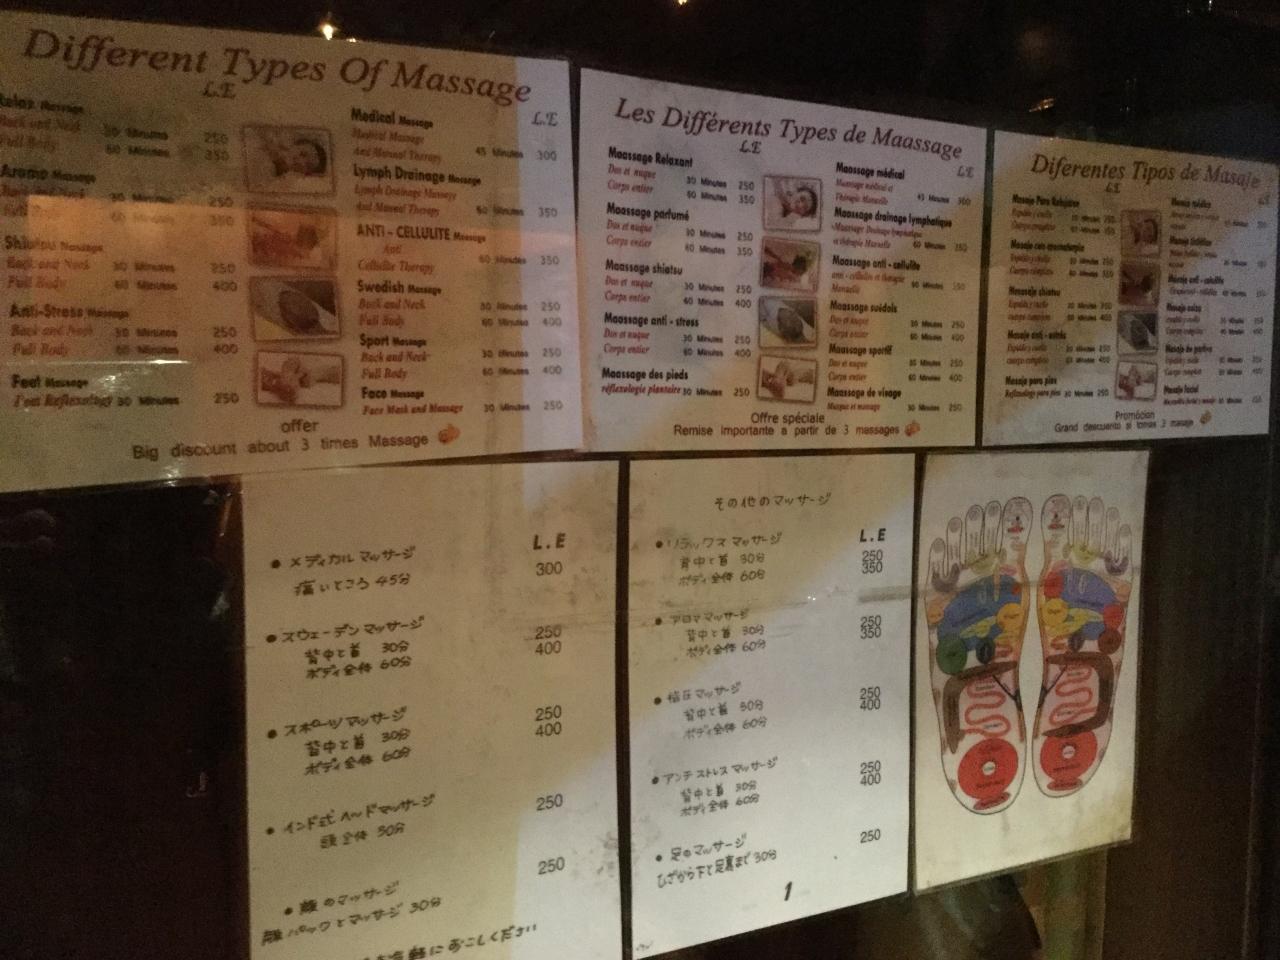 Different Types Of Massage
L.E
Relax Massage
Back and Neck 30 Minutes 250
Full Body 60 Minutes 350
Aroma Massage
Back and Neck 30 Minutes 250
Full Body 60 Minutes 350
Shiatsu Massage
Back and Neck 30 Minutes 250
Full Body 60 Minutes 400
Anti-Stress Massage
Back and Neck 30 Minutes 250
Full Body 60 Minutes 400
Feet Massage
Feet Reflexology 30 Minutes 250
L.E
Medical Massage
Medical Massage
And Manual Therapy 45 Minutes 300
Lymph Drainage Massage
Lymph Drainage Massage
And Manual Therapy 60 Minutes 350
ANTI - CELLULITE Massage
Anti
Cellulite Therapy 60 Minutes 350
Swedish Massage
Back and Neck 30 Minutes 250
Full Body 60 Minutes 400
Sport Massage
Back and Neck 30 Minutes 250
Full Body 60 Minutes 400
Face Massage
Face Mask and Massage 30 Minutes 250
offer
Big discount about 3 times Massage
Les Différents Types de Maassage
L.E
Maassage Relaxant
Dos et nuque 30 Minutes 250
Corps entier 60 Minutes 350
Maassage parfumé
Dos et nuque 30 Minutes 250
Corps entier 60 Minutes 350
Maassage shiatsu
Dos et nuque 30 Minutes 250
Corps entier 60 Minutes 400
Maassage anti - stress
Dos et nuque 30 Minutes 250
Corps entier 60 Minutes 400
Maassage des pieds
réflexologie plantaire 30 Minutes 250
L.E
Maassage médical
Maassage médical et
Thérapie Manuelle 45 Minutes 300
Maassage drainage lymphatique
Maassage Drainage lymphatique
et thérapie Manuelle 60 Minutes 350
Maassage anti - cellulite
anti - cellulite et thérapie
Manuelle 60 Minutes 350
Maassage suédois
Dos et nuque 30 Minutes 250
Corps entier 60 Minutes 400
Maassage sportif
Dos et nuque 30 Minutes 250
Corps entier 60 Minutes 400
Maassage de visage
Masque et massage 30 Minutes 250
Offre spéciale
Remise importante a partir de 3 massages
Diferentes Tipos de Masaje
L.E
Masaje Para Relajarse
Masaje con aromaterapia
Masaje shiatsu
Masaje anti - estrés
Masaje para pies
L.E
Masaje médico
Masaje anti - celulitis
Masaje suizo
Masaje facial
Promocion
Grand descuento si tomas 3 masaje
L.E
• メディカル マッサージ 300
痛いところ 45分
• スウェーデン マッサージ
背中と首 30分 250
ボディ全体 60分 400
• スポーツ マッサージ
背中と首 30分 250
ボディ全体 60分 400
• インド式 ヘッドマッサージ 250
頭全体 30分
250
• 顔のマッサージ
顔パックとマッサージ 30分
気軽におこしください
その他のマッサージ
L.E
• リラックス マッサージ
背中と首 30分 250
ボディ全体 60分 350
• アロママッサージ
背中と首 30分 250
ボディ全体 60分 350
• 指圧マッサージ
背中と首 30分 250
ボディ全体 60分 400
• アンチストレス マッサージ
背中と首 30分 250
ボディ全体 60分 400
• 足のマッサージ 250
ひざから下と足裏まで 30分
1